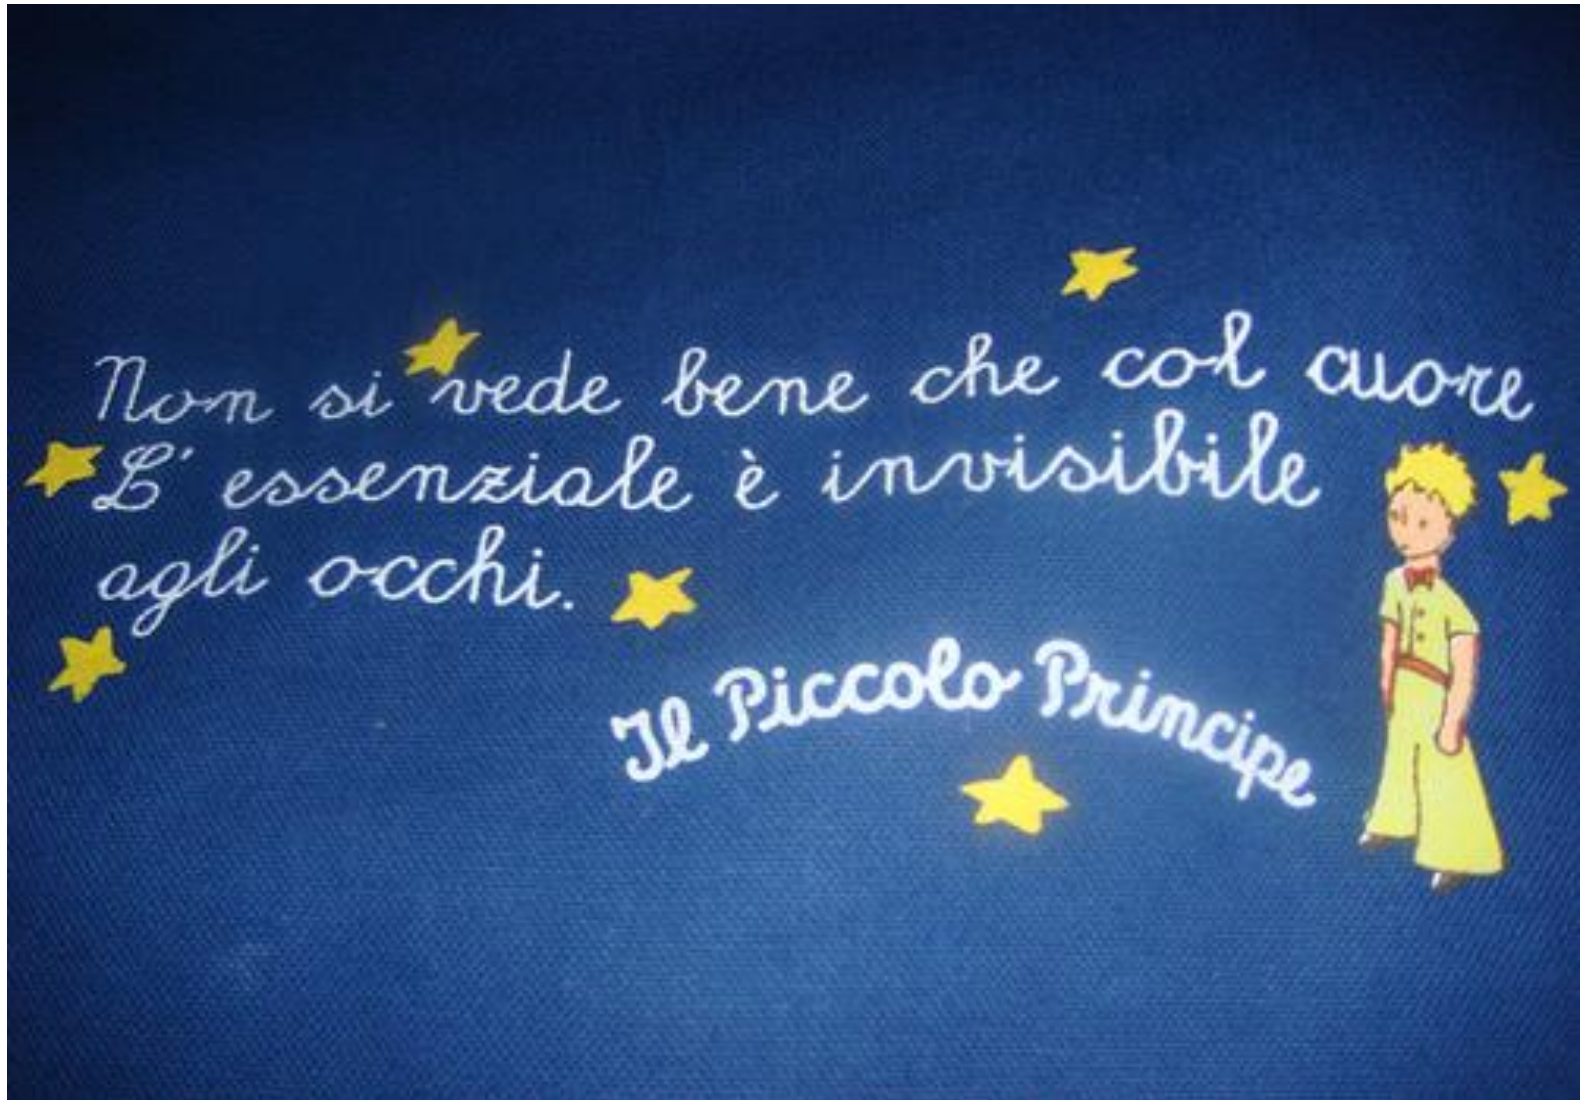 Non si vede bene che col cuore
L' essenziale è invisibile
agli occhi.
Il Piccolo Principe